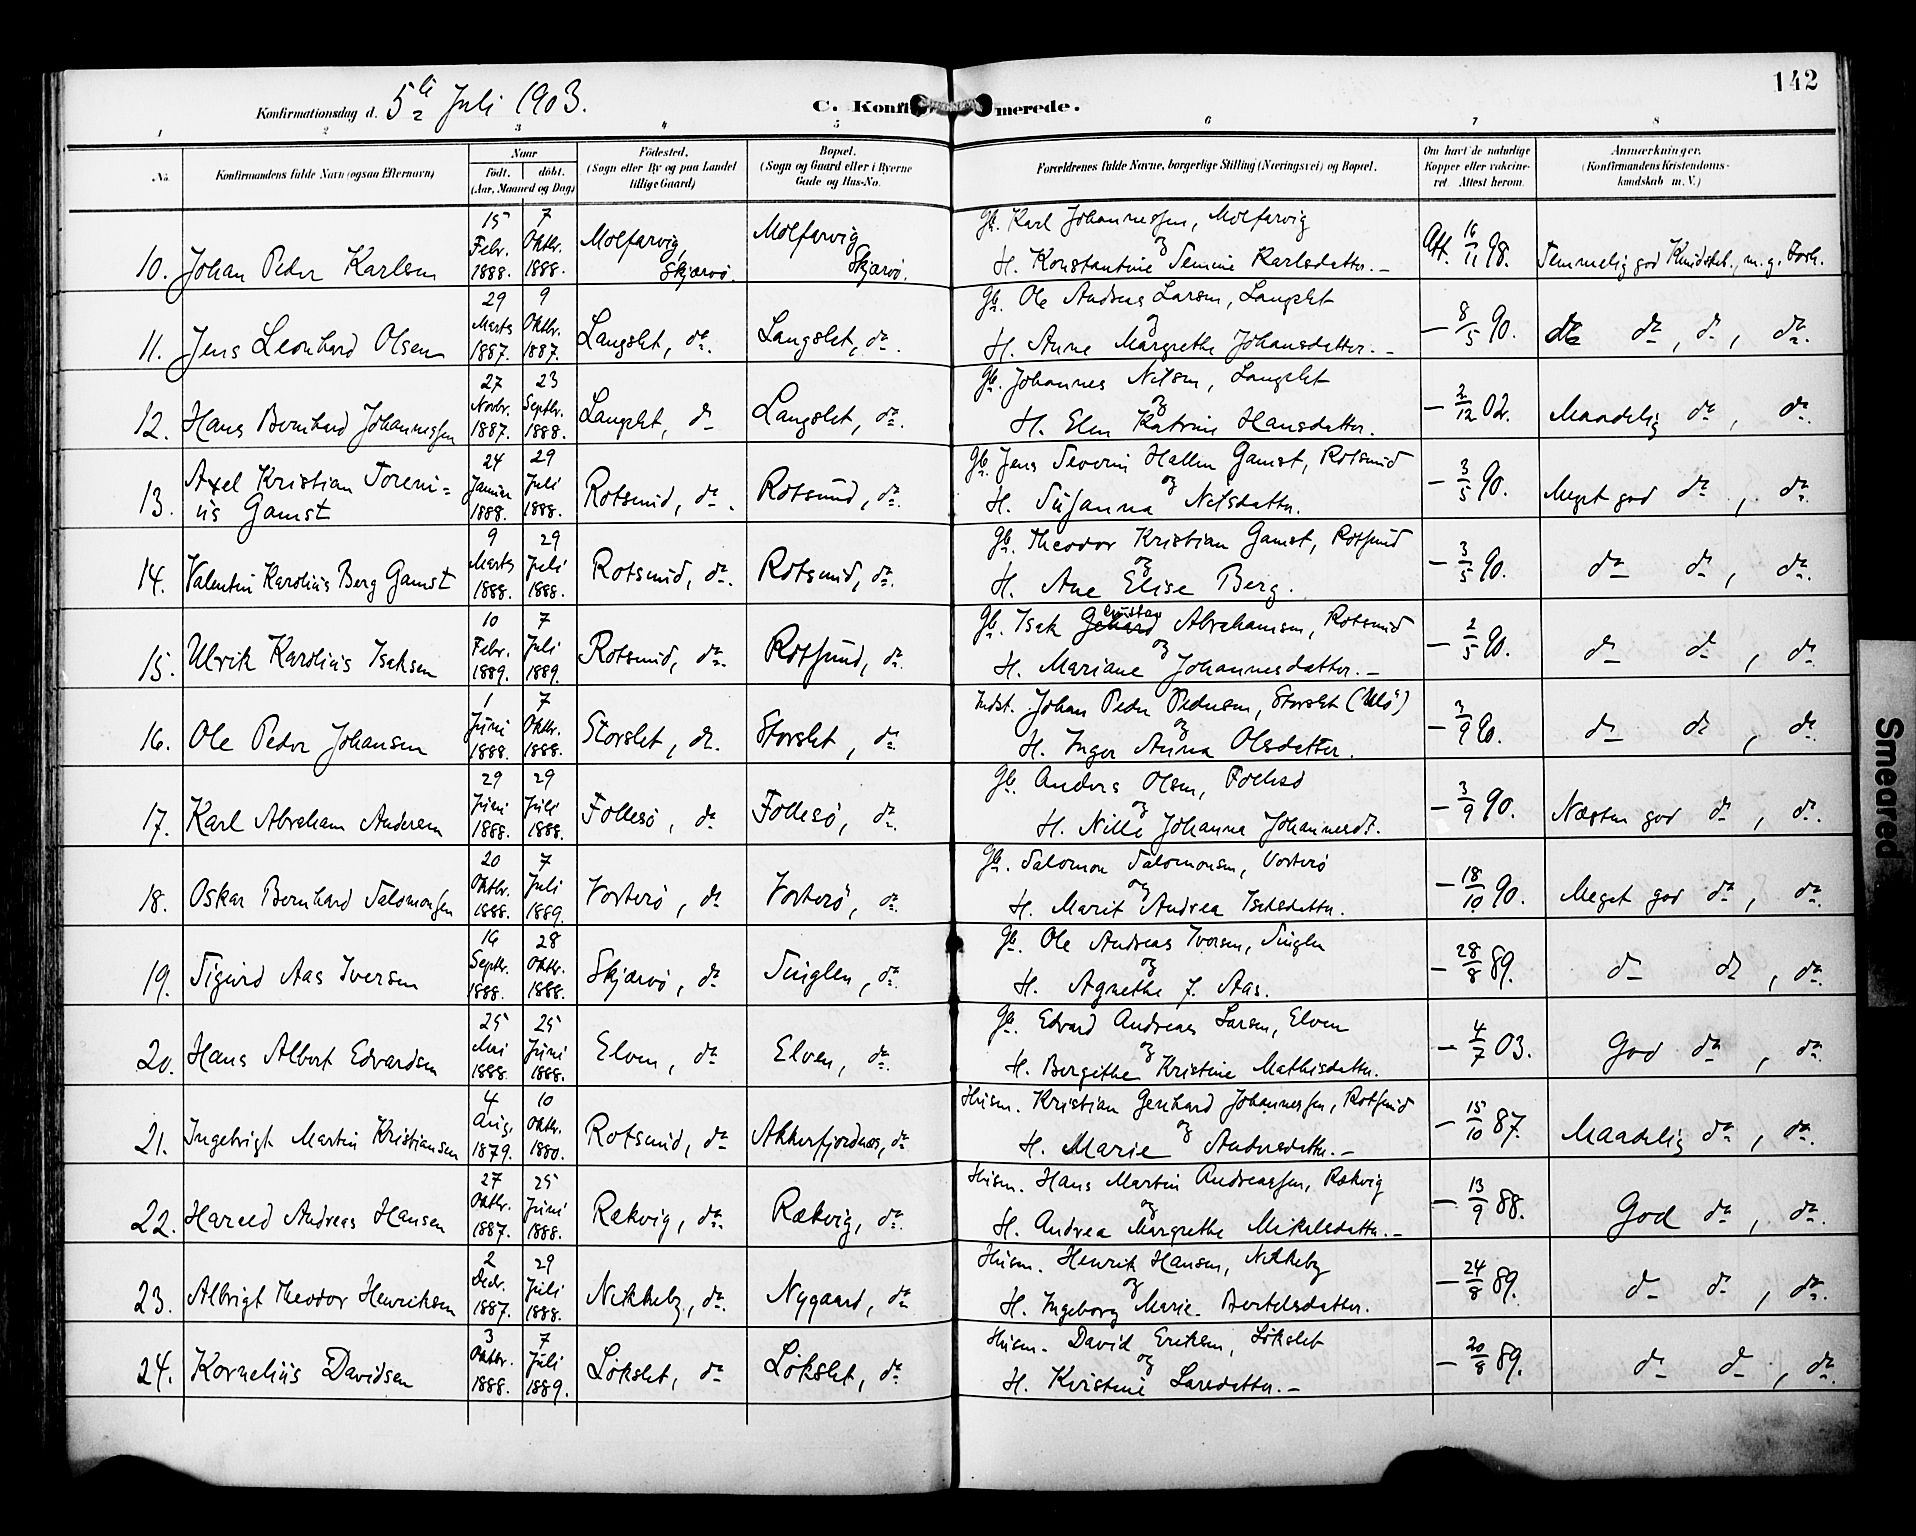 142
Konfirmationsdag d. 5te Juli 1903. C. Konfirmerede.
1 2 3 4 5 6 7 8
No. Konfirmandens fulde Navn (ogsaa Efternavn) Naar født. døbt. (Aar, Maaned og Dag) Fødested. (Sogn eller By og paa Landet tillige Gaard) Bopæl. (Sogn og Gaard eller i Byerne Gade og Hus-No. Forældrenes fulde Navne, borgerlige Stilling (Næringsvei) og Bopæl. Om havt de naturlige Kopper eller vakcineret. Attest herom. Anmærkninger. (Konfirmandens Kristendomskundskab m. V.)
10. Johan Peder Karlsen 15 Febr. 1888. 7 Oktbr. 1888. Molfarvig, Skjærvö. Molfarvig Skjærvö. Gb. Karl Johannessen, Molfarvig og H. Konstantine Karlsdatter.- Att. 16/11 98. Temmelig god Kundskb., m. g. Forh.
11. Jens Leonhard Olsen 29 Marts 1887. 9 Oktbr. 1887. Langslet, do. Langslet, do. Gb. Ole Andreas Larsen, Langslet og H. Anne Margrethe Johansdatter.- - 8/5 90. do do, do, do.
12. Hans Bernhard Johannessen 27 Novbr. 1887. 23 Septbr. 1888. Langslet, do Langslet, do. Gb. Johannes Nilsen, Langslet og H. Elen Katrine Hansdatter. - 2/12 02. Maadelig do, do.
13. Axel Kristian Toreni=us Gamst 24 Januar 1888. 29 Juli 1888. Rotsund, do. Rotsund, do. Gb. Jens Severin Hallen Gamst, Rotsund og H. Susanna Nilsdatter. - 3/5 90. Meget god do, do.
14. Valentin Karolius Berg Gamst 9 Marts 1888. 29 Juli 1888. Rotsund, do. Rotsund, do. Gb. Theodor Kristian Gamst, Rotsund og H. Ane Elise Berg. - 3/5 90. do do, do.
15. Ulrik Karolius Isaksen 10 Febr. 1889. 7 Juli 1889. Rotsund, do. Rotsund, do. Gb. Isak Gustav Abrahamsen, Rotsund og H. Mariane Johannesdatter.- - 2/5 90. do do, do
16. Ole Peder Johansen 1 Juni 1888. 7 Oktbr. 1888. Storslet, do. Storslet, do Indst. Johan Peder Pedersen, Storslet (Ulö) og H. Inger Anna Olsdatter. - 3/9 90. do do, do
17. Karl Abraham Andersen 29 Juni 1888. 29 Juli 1888. Follesö, do Follesö, do. Gb. Anders Olsen, Follesö og H. Nille Johanna Johannesdt. - 3/9 90. Næsten god do, do.
18. Oskar Bernhard Salomonsen 20 Oktbr. 1888. 7 Juli 1889. Vorterö, do Vorterö, do. Gb. Salomon Salomonsen, Vorterö og H. Marit Andrea Isaksdatter. - 18/10 90. Meget god do, do.
19. Sigurd Aas Iversen 16 Septbr. 1888. 28 Oktbr. 1888. Skjærvö, do Singlen, do. Gb. Ole Andreas Iversen, Singlen og H. Agnethe J. Aas. - 28/8 89. do do, do.
20. Hans Albert Edvardsen 25 Mai 1888 25 Juni 1888. Elven, do Elven, do. Gb. Edvard Andreas Larsen, Elven og H. Bergithe Kristine Mathisdatter. - 4/7 03. God do, do.
21. Ingebrigt Martin Kristiansen 4 Aug. 1879. 10 Oktbr. 1880. Rotsund, do Akkerfjordnæs, do Husm. Kristian Gerhard Johannessen, Rotsund og H. Marie Andersdatter.- - 15/10 87. Maadelig do, do.
22. Hareld Andreas Hansen 27 Oktbr. 1887. 25 Juni 1888. Rækvig, do. Rækvig, do. Husm. Hans Martin Andreassen, Rækvig og H. Andrea Margrethe Mikkelsdatter.- - 13/9 88. God do, do.
23. Albrigt Theodor Henriksen 2 Decbr. 1887. 29 Juli 1888. Nikkeby, do. Nygaard, do Husm. Henrik Hansen, Nikkeby og H. Ingeborg Marie Bertelsdatter. - 24/8 89. do do, do.
24. Kornelius Davidsen 3 Oktbr. 1888. 7 Juli 1889. Lökslet, do Lökslet, do. Husm. David Eriksen, Lökslet og H. Kristine Larsdatter.- - 20/8 89. do do, do.
Smeared